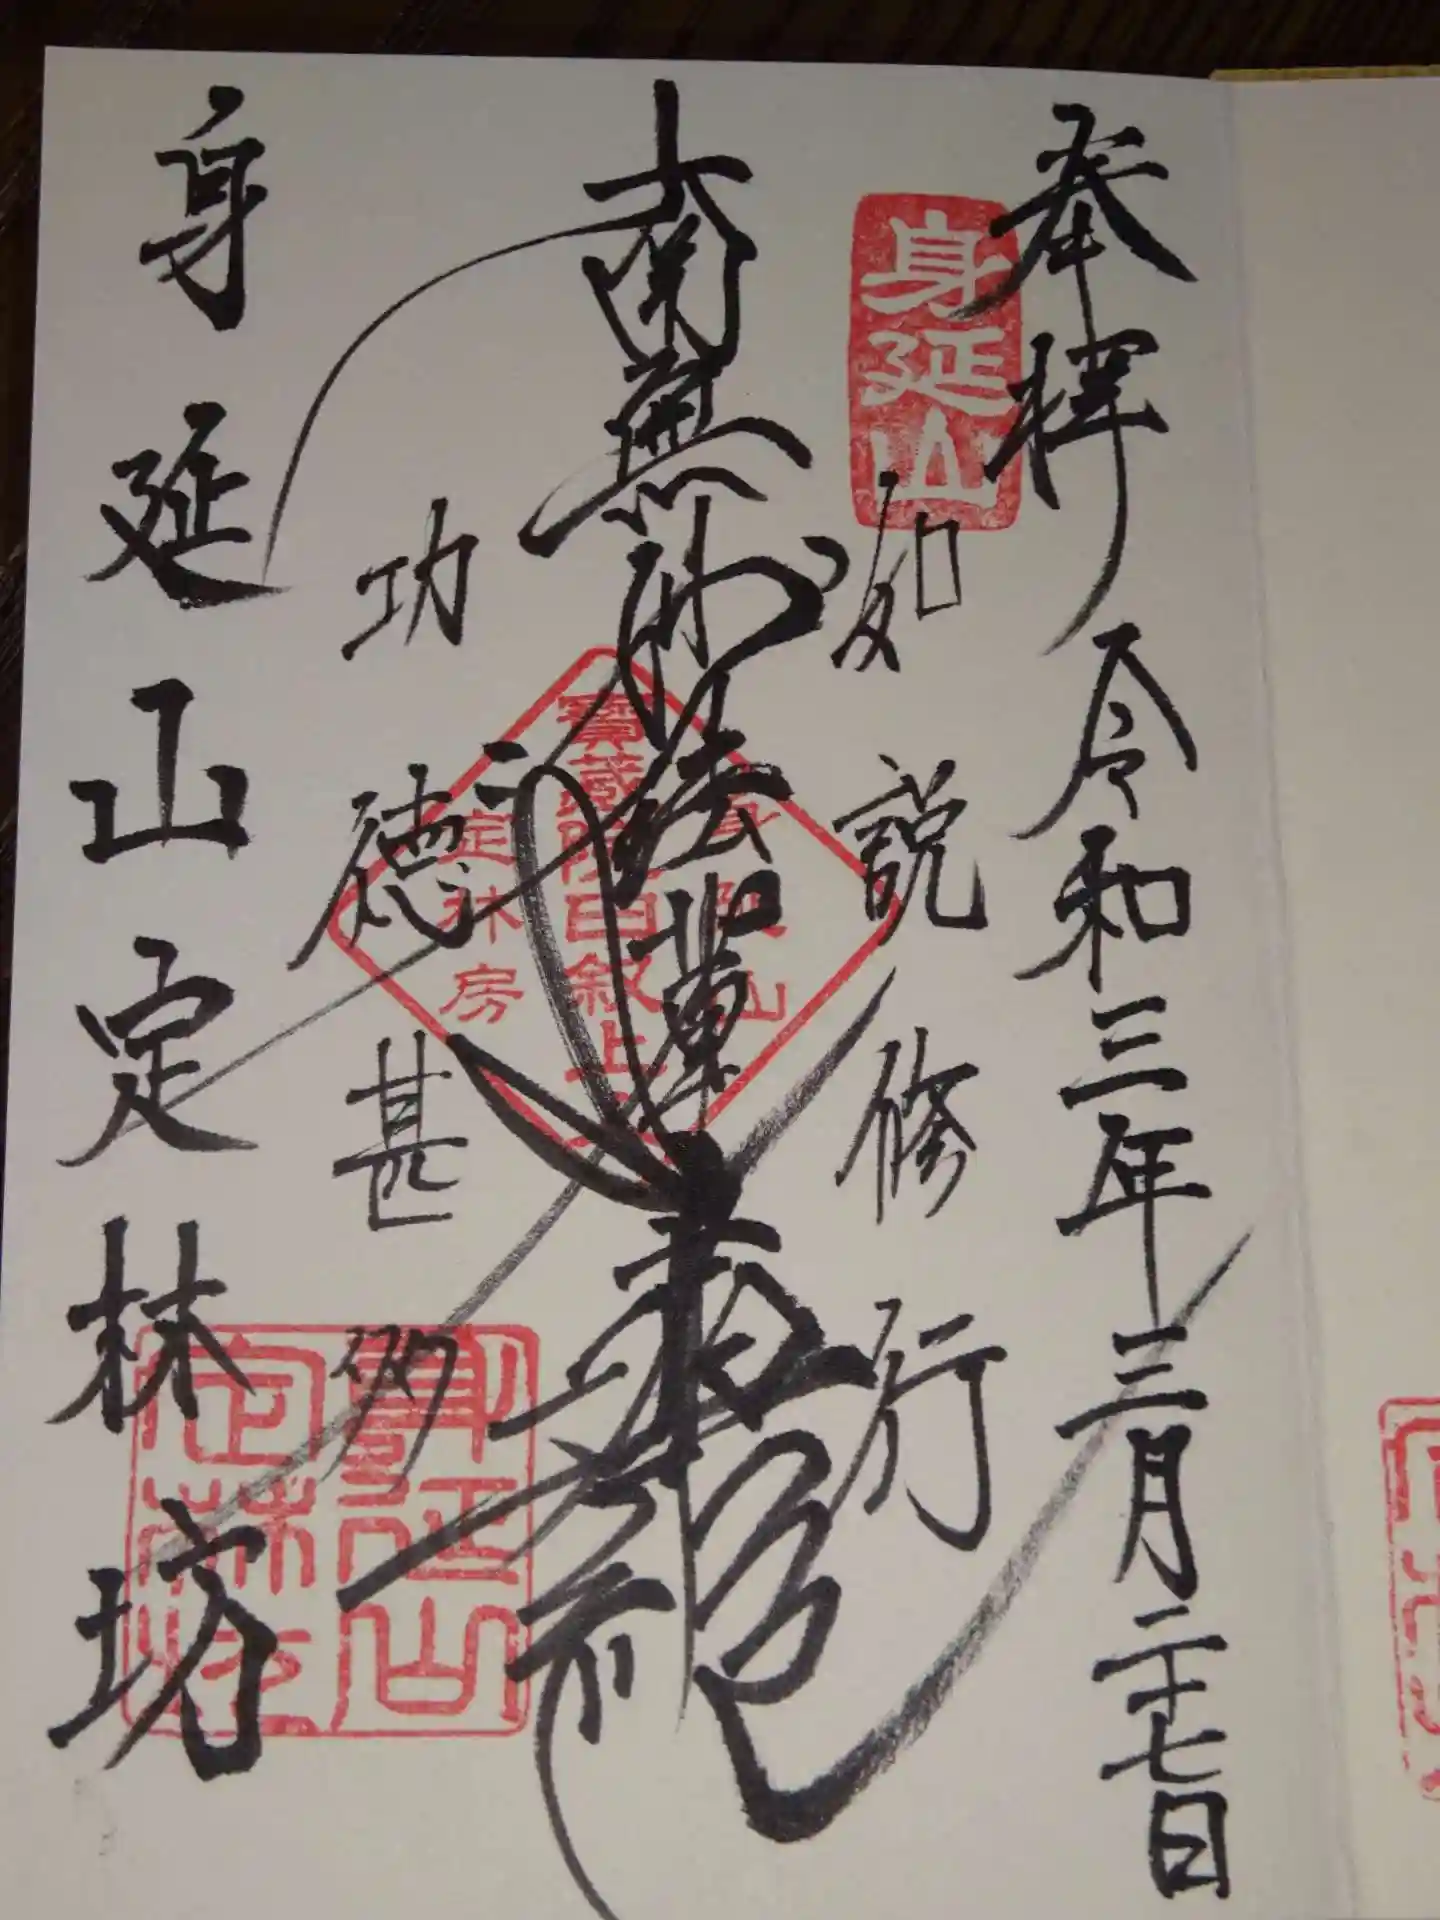 奉拝 令和三年三月二十七日
身延山
如説修行
南無妙法蓮華経
身延山
寶蔵院日叙上
定林房
功徳甚多
身延山定林坊
身延山
定林坊